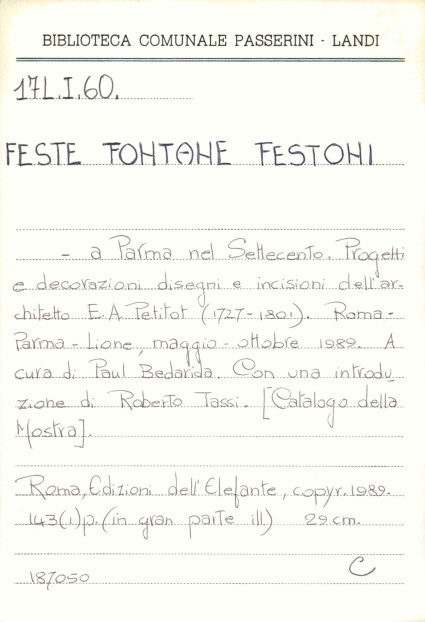 BIBLIOTECA COMUNALE PASSERINI - LANDI
17L.I.60.
FESTE FONTANE FESTONI
- a Parma nel Settecento. Progetti
e decorazioni disegni e incisioni dell'ar-
chitetto E.A. Petitot (1727-1801). Roma-
Parma - Lione, maggio - ottobre 1989. A
cura di Paul Bedarida. Con una introdu_
zione di Roberto Tassi. [Catalogo della
Mostra].
Roma, Edizioni dell'Elefante, copyr. 1989.
143(1)p. (in gran parte ill.) 29 cm.
187050
C